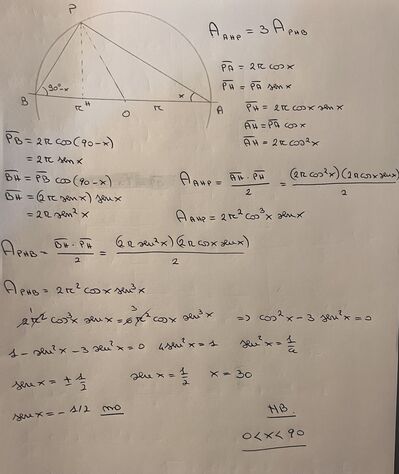 P
A_AHP = 3 A_PHB
B 90°-x r H O r x A
PA = 2r cos x
PH = PA sen x
PH = 2r cos x sen x
AH = PA cos x
AH = 2r cos²x
PB = 2r cos(90-x)
= 2r sen x
BH = PB cos(90-x)
BH = (2r sen x) sen x
= 2r sen² x
A_AHP = AH · PH / 2 = (2r cos²x)(2r cos x sen x) / 2
A_AHP = 2r² cos³x sen x
A_PHB = BH · PH / 2 = (2r sen²x)(2r cos x sen x) / 2
A_PHB = 2r² cos x sen³x
2r² cos³x sen x = 6r² cos x sen³x => cos²x - 3 sen²x = 0
1 3
1 - sen²x - 3 sen²x = 0 4 sen²x = 1 sen²x = 1/4
sen x = ± 1/2 sen x = 1/2 x = 30
sen x = - 1/2 no
NB.
0 < x < 90